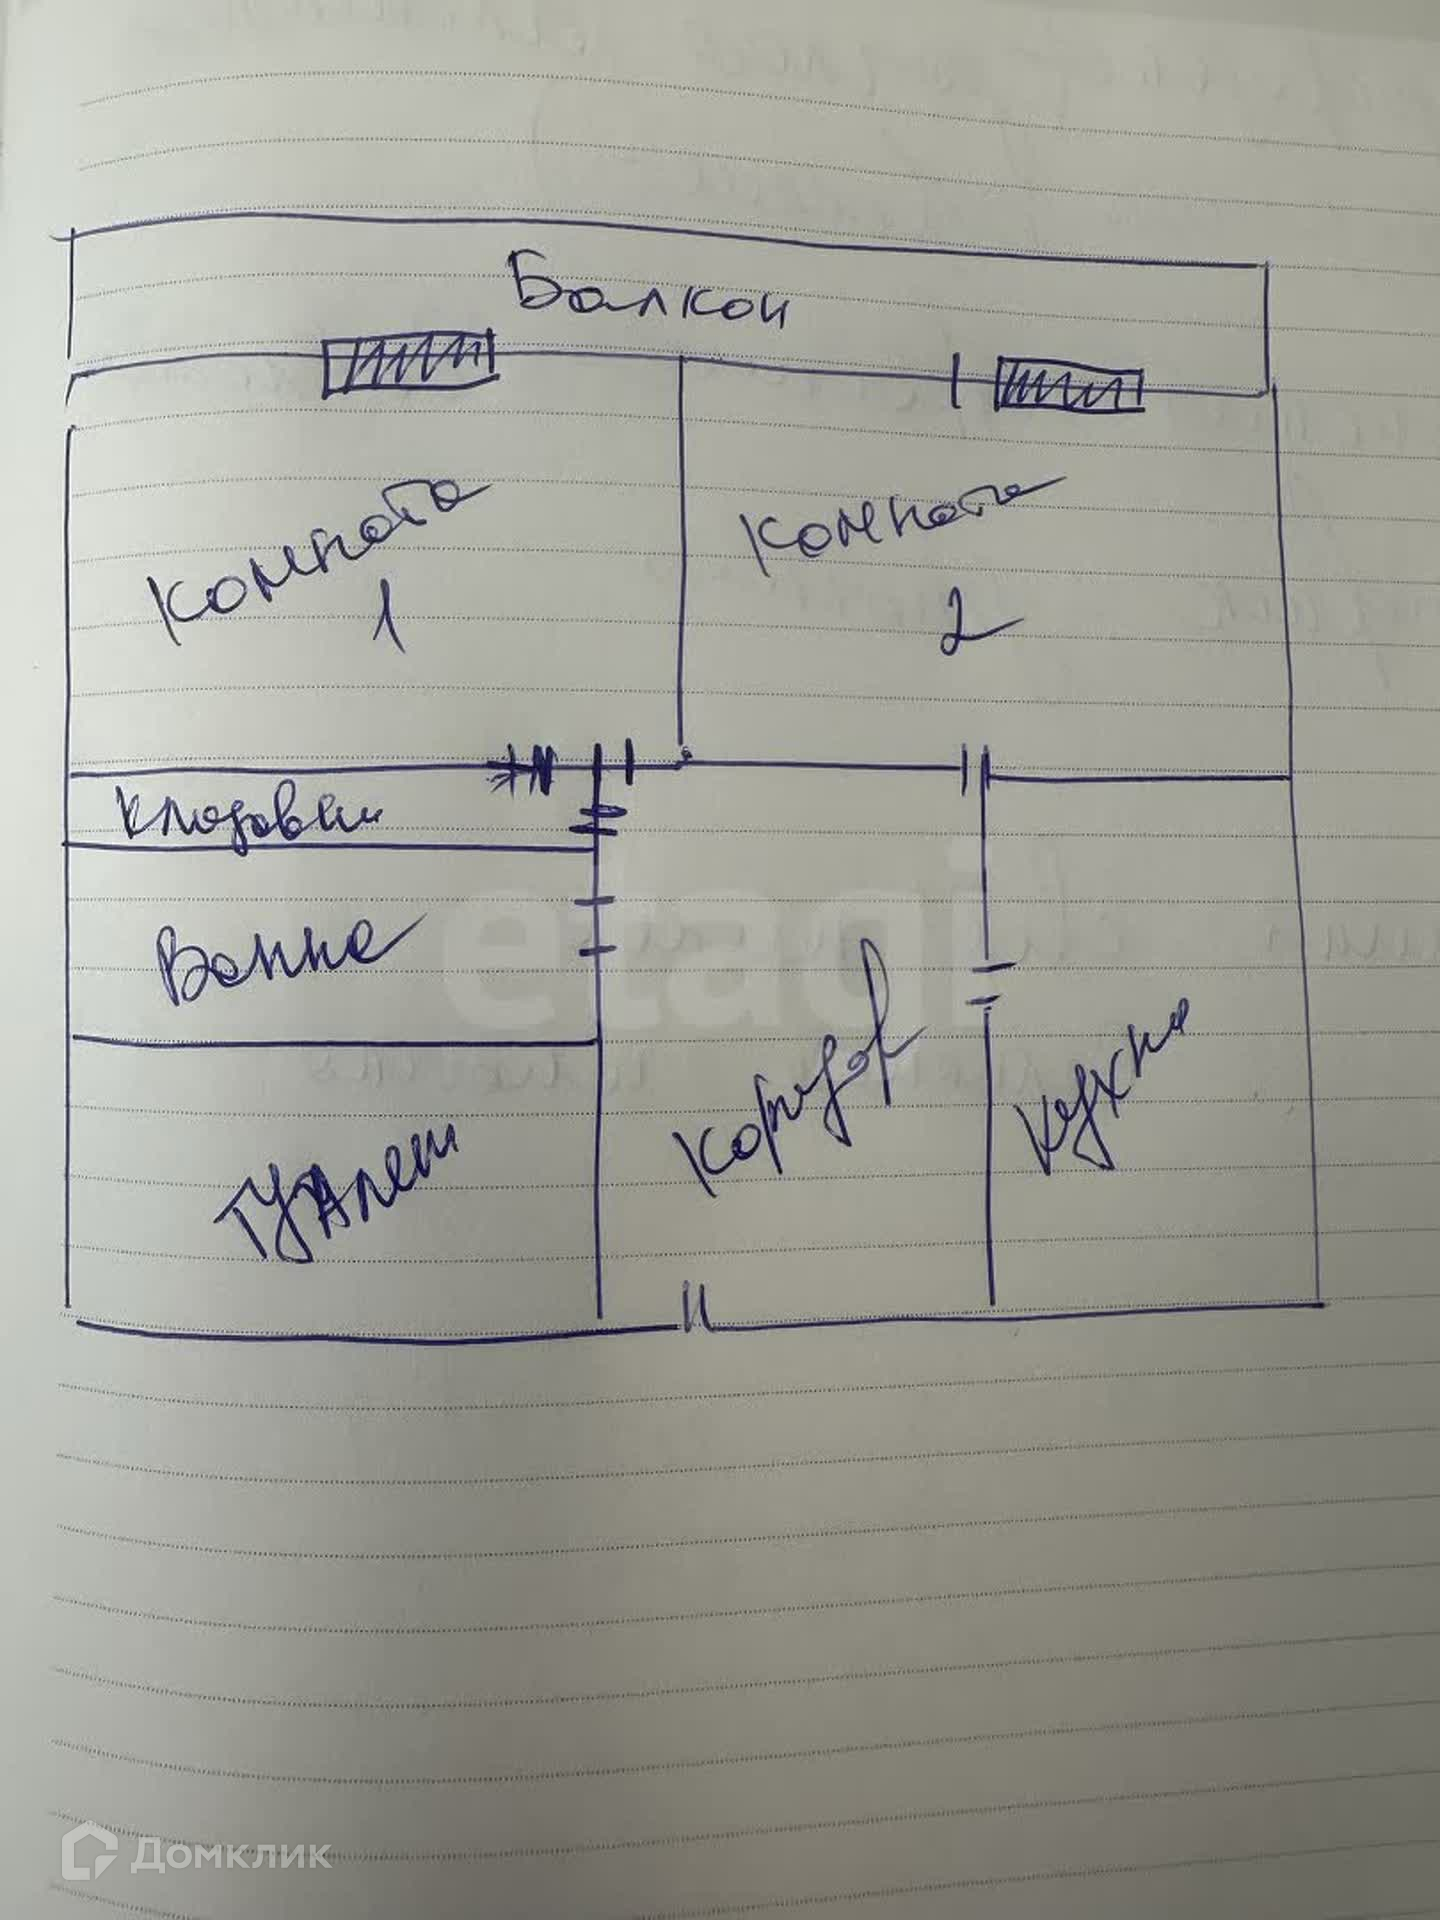 Балкон
Комната
1
Комната
2
Кладовка
Ванна
Туалет
Коридор
Кухня
etagi
Домклик